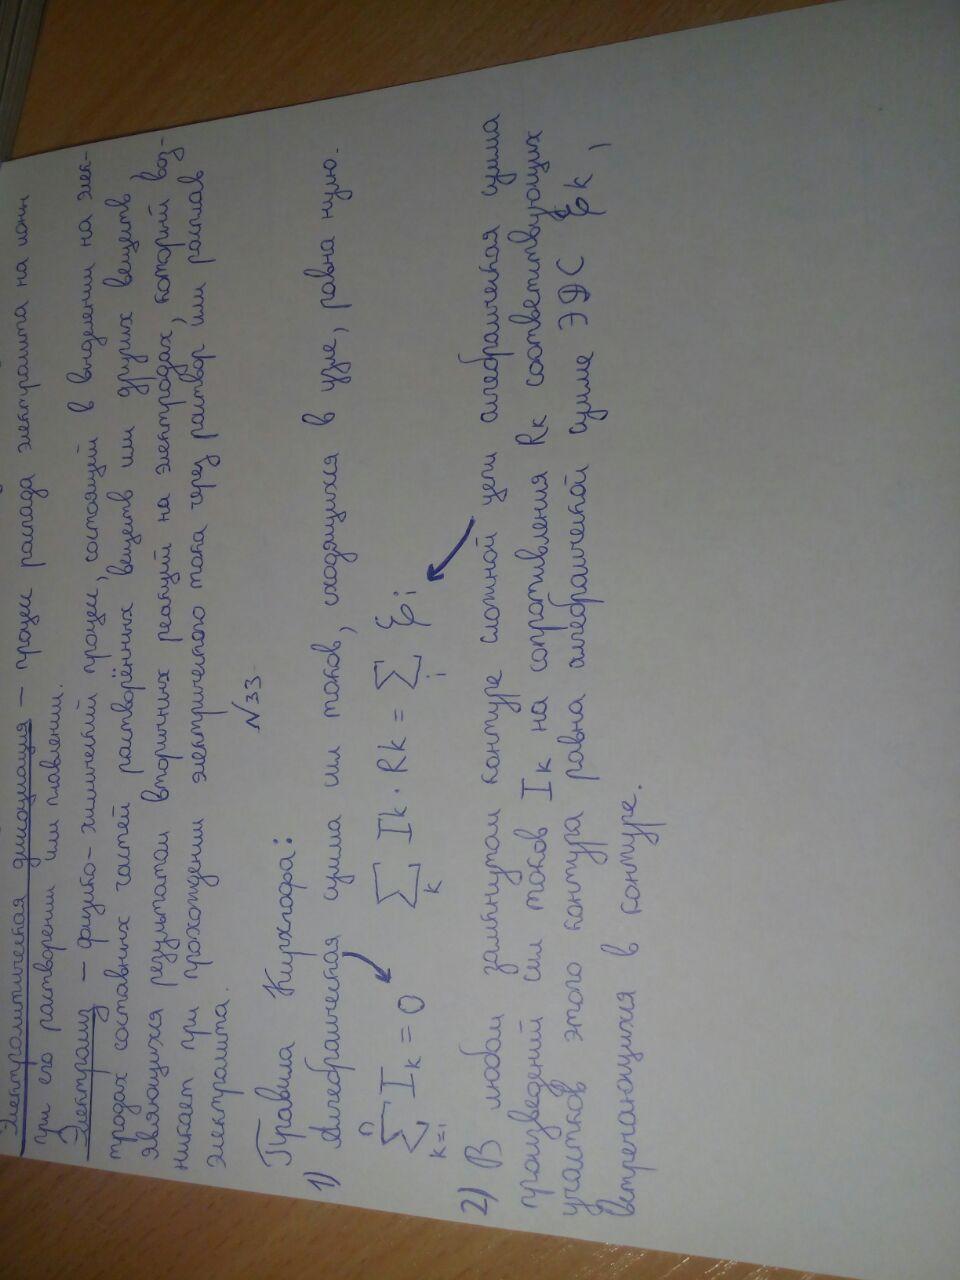 Электролитическая дисоциация — процесс распада электролита на ионы
при его растворении или плавлении.
Электролиз — физико-химический процесс, состоящий в выделении на элек-
тродах составных частей растворённых веществ или других веществ,
являющихся результатом вторичных реакций на электродах, который воз-
никает при прохождении электрического тока через раствор или расплав
электролита.
№33
Правила Кирхгофа:
1) Алгебраическая сумма сил токов, сходящихся в узле, равна нулю.
n
∑ Iк = 0 ∑ Iк · Rк = ∑ ℰi
к=1 к i
2) В любом замкнутом контуре сложной цепи алгебраическая сумма
произведений сил токов Iк на сопротивления Rк соответствующих
участков этого контура равна алгебраической сумме ЭДС ℰк,
встречающихся в контуре.